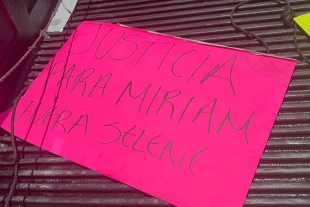 JUSTICIA
PARA MIRIAM
Y PARA SELENE